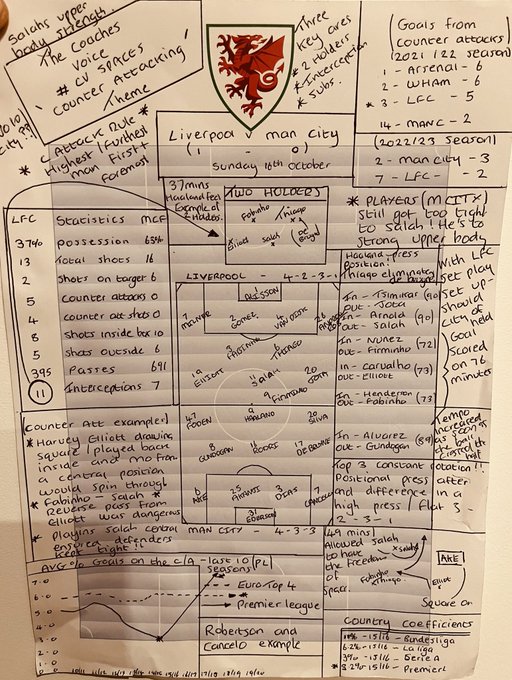 Salahs upper
body strength.
The Coaches
Voice
# CV SPACES
'Counter Attacking'
Theme
Three
Key ones
* 2 Holders
* Interception
* Subs.
(Goals from
counter attacks)
(2021/22 season)
1 - Arsenal - 6
2 - WHAM - 6
* 3 - LFC - 5
14 - MANC - 2
(2022/23 season)
2 - man city - 3
7 - LFC - 2
C ATTACK RULE *
* Highest / furthest
man first +
foremost
Liverpool v man city
(1 - 0)
Sunday 16th October
37 mins
Haaland feet
Example of
2 holders.
TWO HOLDERS
Fabinho Thiago
Elliott Salah (De Bruyne)
* PLAYERS (M CITY)
still got too tight
to Salah! He's to
strong upper body
LFC Statistics MCF
37% possession 63%
13 Total shots 16
2 shots on target 6
5 counter attacks 0
4 counter att shots 0
8 shots inside box 10
5 shots outside 6
395 Passes 691
11 Interceptions 7
LIVERPOOL - 4-2-3-1
ALISSON
7 MILNER
2 GOMEZ
4 VAN DIJK
3 FABINHO
6 THIAGO
19 ELLIOTT
11 SALAH
20 JOTA
9 FIRMINHO
47 FODEN
9 HAALAND
20 SILVA
8 GUNDOGAN
16 RODRI
17 DE BRUYNE
6 AKE
25 AKANJI
3 DIAS
7 CANCELO
31 EDERSON
MAN CITY - 4-3-3
Haaland press
position!
Thiago eliminated
de bruyne
In - Tsimikas (90)
out - Jota
In - Arnold (90)
out - Salah
In - Nunez
out - Firminho (72)
In - carvalho (73)
out - Elliott
In - Henderson
out - Fabinho (73)
In - Alvarez (89)
out - Gundogan
With LFC
set play
set up -
should
city of
held
Goal
scored
on 76
minutes
Tempo
increased
as soon as
the ball
crossed the
half
Top 3 constant rotation!!
Positional press after
and difference in a
high press / flat 3 -
2-3-1
Counter Att example)
* Harvey Elliott drawing
square / played back
inside and mo from
a central position
would spin through
* Fabinho - Salah *
Reverse pass from
Elliott was dangerous
* playing salah central
ensured defenders
kept tight!!
49 mins)
Allowed Salah
to have
the freedom
of
space.
x Salah
Fabinho
+ Thiago
AKE
Elliott
Square on
AVG % Goals on the C/A - last 10 (PL)
seasons
7.0
6.0
5.0
4.0
3.0
2.0
1.0
0
Euro Top 4
Premier league
Robertson and
Cancelo example
Country Coefficients
15/16 - Bundesliga
6.2% - 15/16 - La liga
15/16 - Serie A
* 3.2% - 15/16 - Premier L